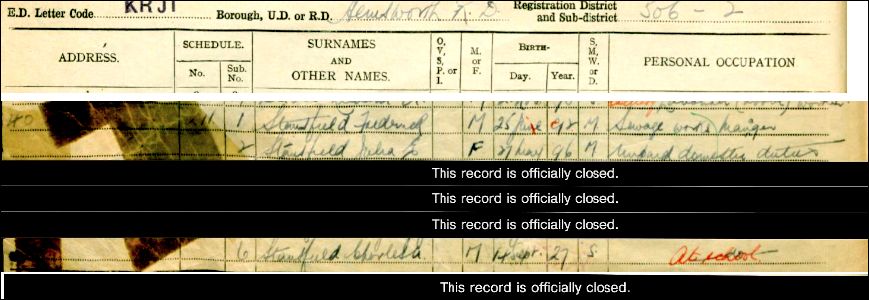 E.D. Letter Code KRJI Borough, U.D. or R.D. Hemsworth R. D. Registration District and Sub-district 506 - 2
ADDRESS. SCHEDULE. No. Sub. No. SURNAMES AND OTHER NAMES. O, V, S, P. or I. M. or F. BIRTH- Day. Year. S, M, W, or D. PERSONAL OCCUPATION
40 1 Stansfield Frederick M 25 92 M Sewage works Manager
2 Stansfield F 27 96 M Unpaid domestic duties
This record is officially closed.
This record is officially closed.
This record is officially closed.
6 Stansfield Charles M 14 Sept. 27 S At school
This record is officially closed.